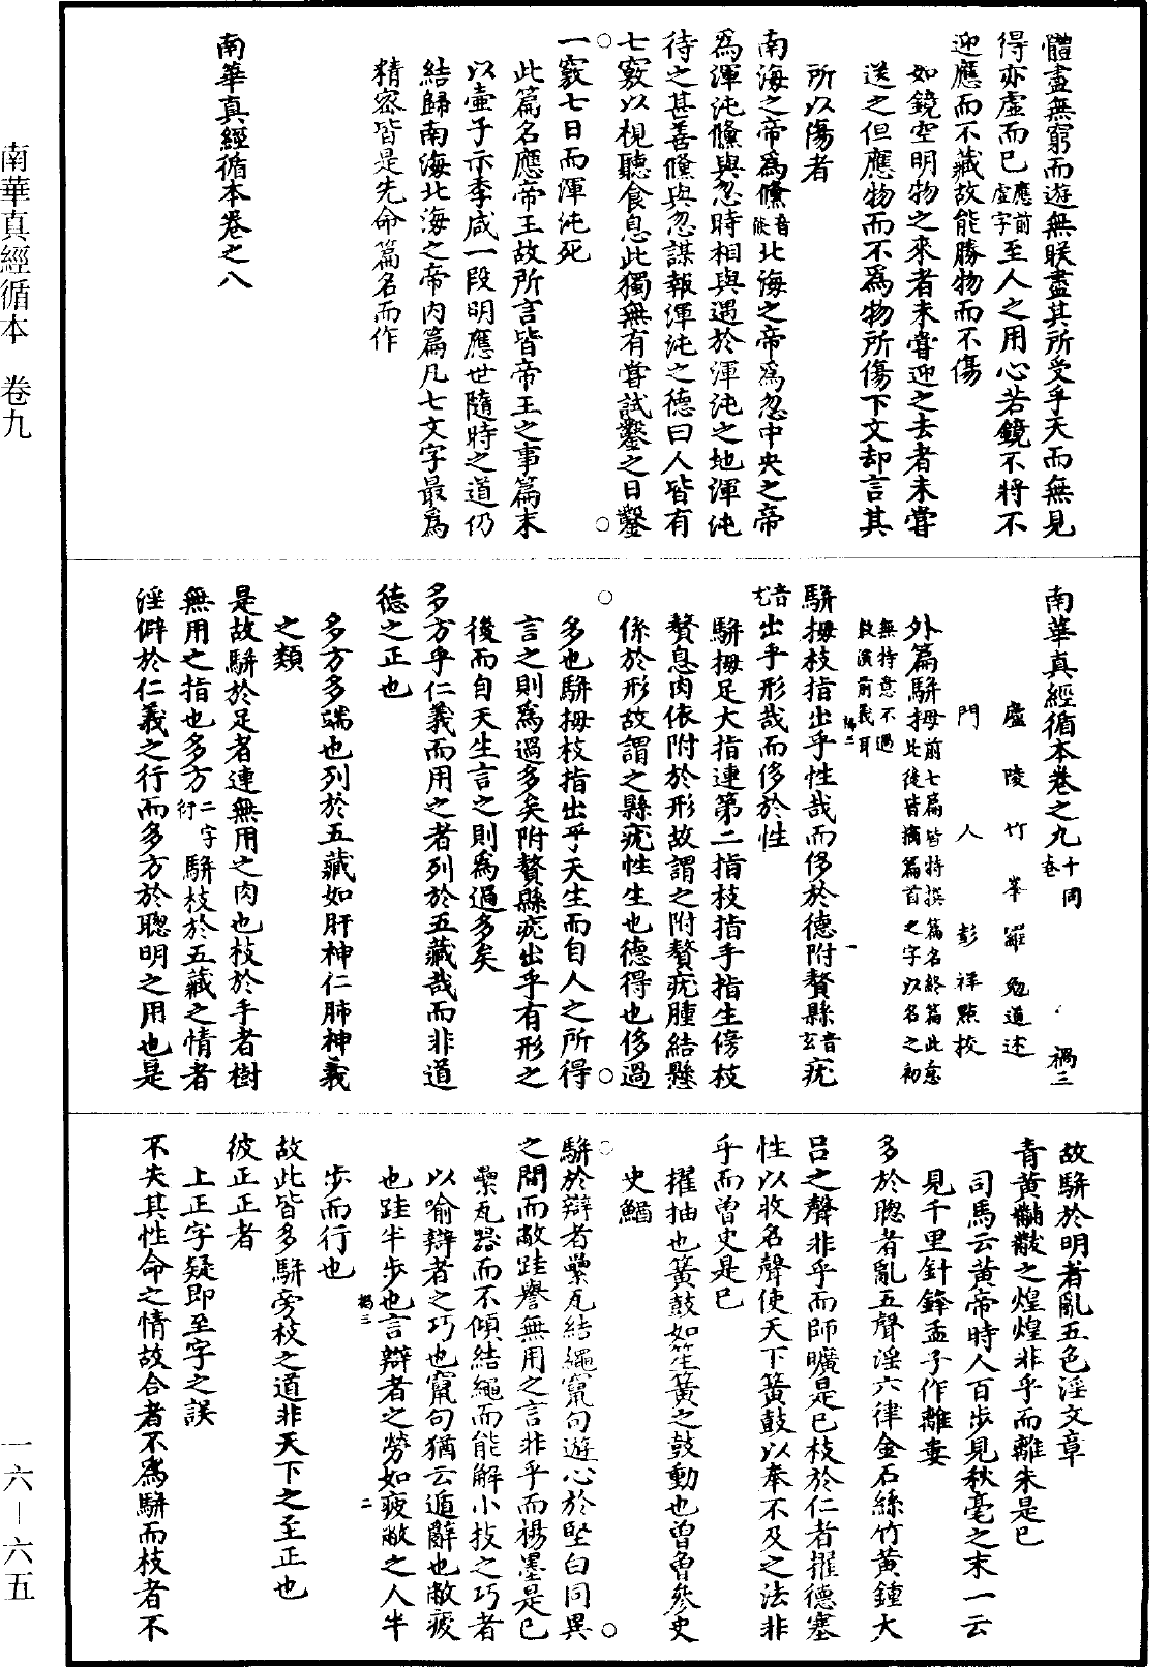 南華真經循本　卷九
體盡無窮而遊無朕盡其所受乎天而無見
得亦虛而已應前虛字至人之用心若鏡不將不
迎應而不藏故能勝物而不傷
如鏡空明物之來者未嘗迎之去者未嘗
送之但應物而不爲物所傷下文却言其
所以傷者
南海之帝爲儵音倏北海之帝爲忽中央之帝
爲渾沌儵與忽時相與遇於渾沌之地渾沌
待之甚善儵與忽謀報渾沌之德曰人皆有
七竅以視聽食息此獨無有嘗試鑿之日鑿
一竅七日而渾沌死
此篇名應帝王故所言皆帝王之事篇末
以壺子示季咸一段明應世隨時之道仍
結歸南海北海之帝内篇凡七文字最爲
精密皆是先命篇名而作
南華真經循本卷之八
南華真經循本卷之九十同卷　禍三
廬陵竹峯羅勉道述
門人彭祥點校
外篇駢拇前七篇皆特撰篇名終篇此意
此後皆摘篇首之字以名之初
無特意不過
敷演前義耳
駢拇枝指出乎性哉而侈於德附贅縣音玄疣
音尤出乎形哉而侈於性
駢拇足大指連第二指枝指手指生傍枝
贅息肉依附於形故謂之附贅疣腫結懸
係於形故謂之縣疣性生也德得也侈過
多也駢拇枝指出乎天生而自人之所得
言之則爲過多矣附贅縣疣出乎有形之
後而自天生言之則爲過多矣
多方乎仁義而用之者列於五藏哉而非道
德之正也
多方多端也列於五藏如肝神仁肺神義
之類
是故駢於足者連無用之肉也枝於手者樹
無用之指也多方二字衍駢枝於五藏之情者
淫僻於仁義之行而多方於聰明之用也是
故駢於明者亂五色淫文章
青黃黼黻之煌煌非乎而離朱是已
司馬云黃帝時人百步見秋毫之末一云
見千里針鋒孟子作離婁
多於聰者亂五聲淫六律金石絲竹黃鍾大
呂之聲非乎而師曠是已枝於仁者擢德塞
性以收名聲使天下簧鼓以奉不及之法非
乎而曾史是已
擢抽也簧鼓如笙簧之鼓動也曾曾參史
史鰌
駢於辯者纍瓦結繩竄句遊心於堅白同異
之間而敝跬譽無用之言非乎而楊墨是已
纍瓦器而不傾結繩而能解小技之巧者
以喻辯者之巧也竄句猶云遁辭也敝疲
也跬半步也言辯者之勞如疲敝之人半
步而行也
故此皆多駢旁枝之道非天下之至正也
彼正正者
上正字疑即至字之誤
不失其性命之情故合者不爲駢而枝者不
一六—六五